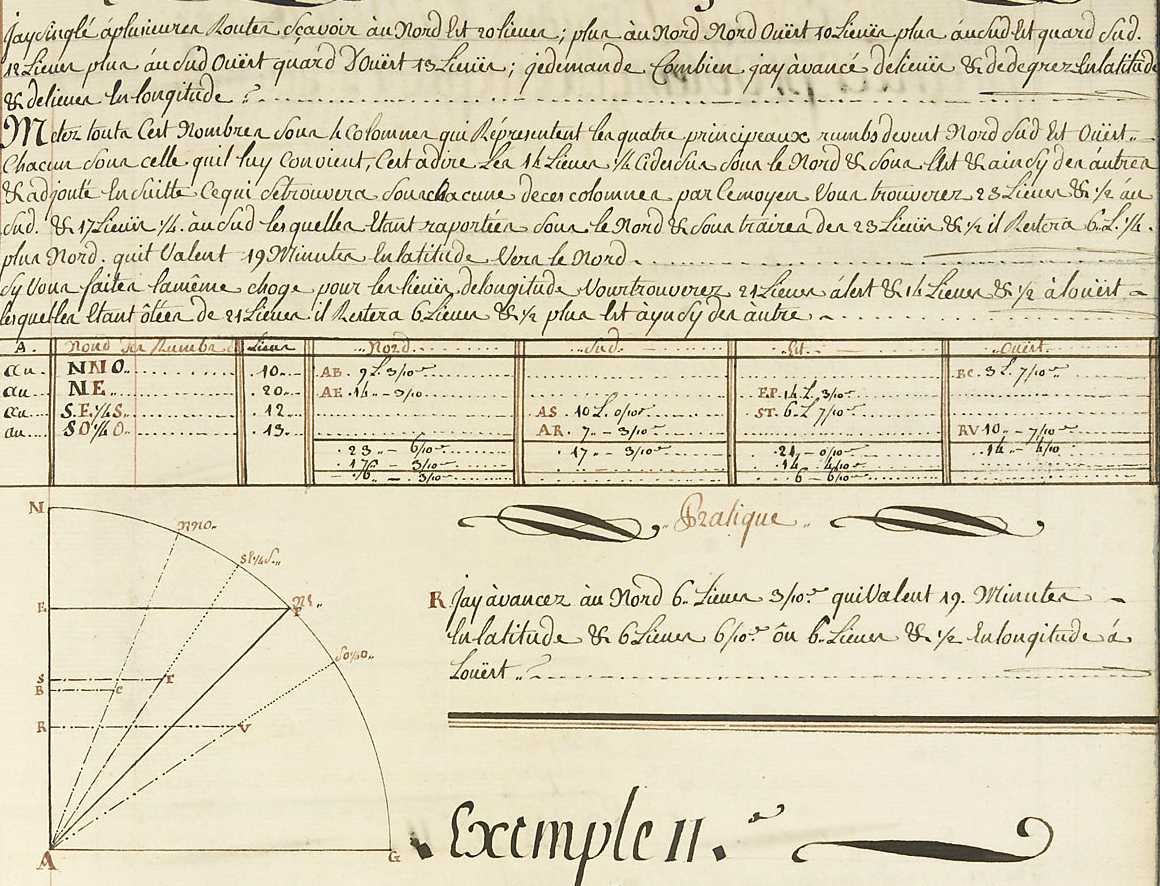 Jay singlé à plusieurer Router sçavoir àu Nord Est 20 lieuer; plur àu Nord Nord Ouërt 10 Lieuër plur áu Sud Est quard Sud.
12 Lieuer plur áu Sud Ouërt quard d'Ouërt 13 Lieuër; je demande Combien jay àvancé de lieuër & de degrez En latitude
& de lieuer En longitude ?
Metez toutr Cert Nombrer Sour 4 Colomner qui Réprésentent ler quatre principeaux rumbs devent Nord Sud Est Ouërt
Chacun Sour celle quil luy Convient, Cert adire Ler 14 Lieuer 1/4 Cidersur Sour le Nord & Sour l'Est & ainsy der áutrer
& adjouté En Suitte Cequi Se trouvera Sour chacune deces colomner par Cemoyen Vour trouverez 23 Lieuer & 1/2 áu
Sud. & 17 Lieuër 1/4. àu Sud lerqueller Etant raportéer Sour le Nord & Soustrairer der 23 Lieuër & 1/2 il Rertera 6. L. 1/4.
plur Nord. quit Valent 19 Minuter En latitude Verr le Nord.
Sy Vour faiter la même choge pour ler lieuër de longitude Vour trouverez 21 Lieuer á lert & 14 Lieuer & 1/2 à louërt
lerqueller Etant ôtéer de 21 Lieuer il Rertera 6 Lieuer & 1/2 plur Est à ynsy der autre
A. Nond der Rumbr Lieur Nord. Sud. Est Ouërt.
au. NNO. 10. AB. 9 L. 3/10 BC. 3 L. 7/10
au NE. 20. AE. 14 - 3/10 EP. 14 L. 3/10
au S.E.1/4S. 12 AS. 10 L. 0/10 ST. 6 L 7/10
au SO 1/4 O. 13. AR. 7 - 3/10 RV 10 - 7/10
23 - 6/10 17 - 3/10 21 - 0/10 14 - 4/10
17 - 3/10 14 4/10
6 - 3/10 6 - 6/10
Pratique
N
NNO.
SE 1/4 S.
E
NE.
P
SO 1/4 O.
S
T
B
C
R
V
A
G
R Jay àvancez àu Nord 6. Lieuer 3/10 qui Valent 19. Minuter
En latitude & 6 Lieuer 6/10 ôu 6. Lieuer & 1/2 En longitude á
Louërt.
Exemple II.